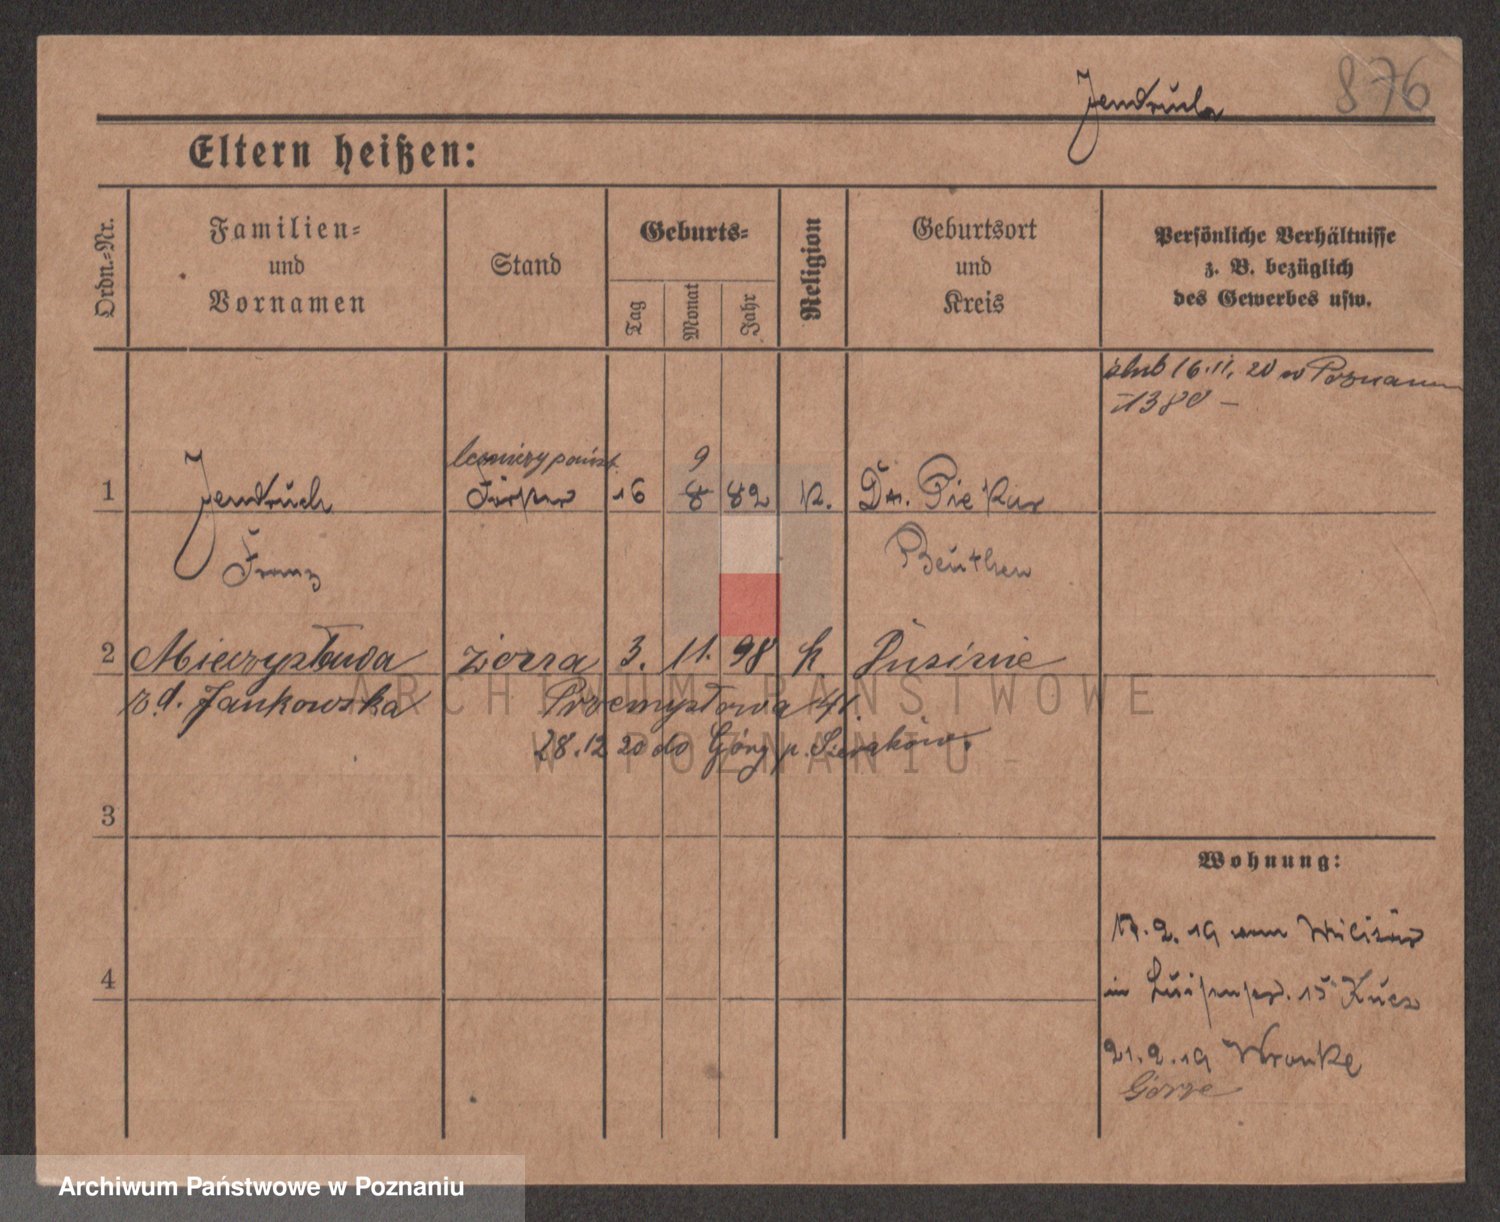 876
Jendruch
Eltern heißen:
Ordn.-Nr.
Familien-
und
Vornamen
Stand
Geburts-
Tag
Monat
Jahr
Religion
Geburtsort
und
Kreis
Persönliche Verhältnisse
z. B. bezüglich
des Gewerbes usw.
ślub 16.11.20 w Poznaniu
1380 –
leśniczy państ.
9
1 Jendruch Förster 16 8 82 K. Dt. Piekar
Franz Beuthen
2 Mieczysława żona 3. 11. 98 k
z d. Jankowska Przemysłowa 41.
28.12 20 do Góry p. Sieraków.
3
4
Wohnung:
17.2.19 vom Militär
in 15
21.2.19 Wronke
ARCHIWUM PAŃSTWOWE
W POZNANIU
Archiwum Państwowe w Poznaniu